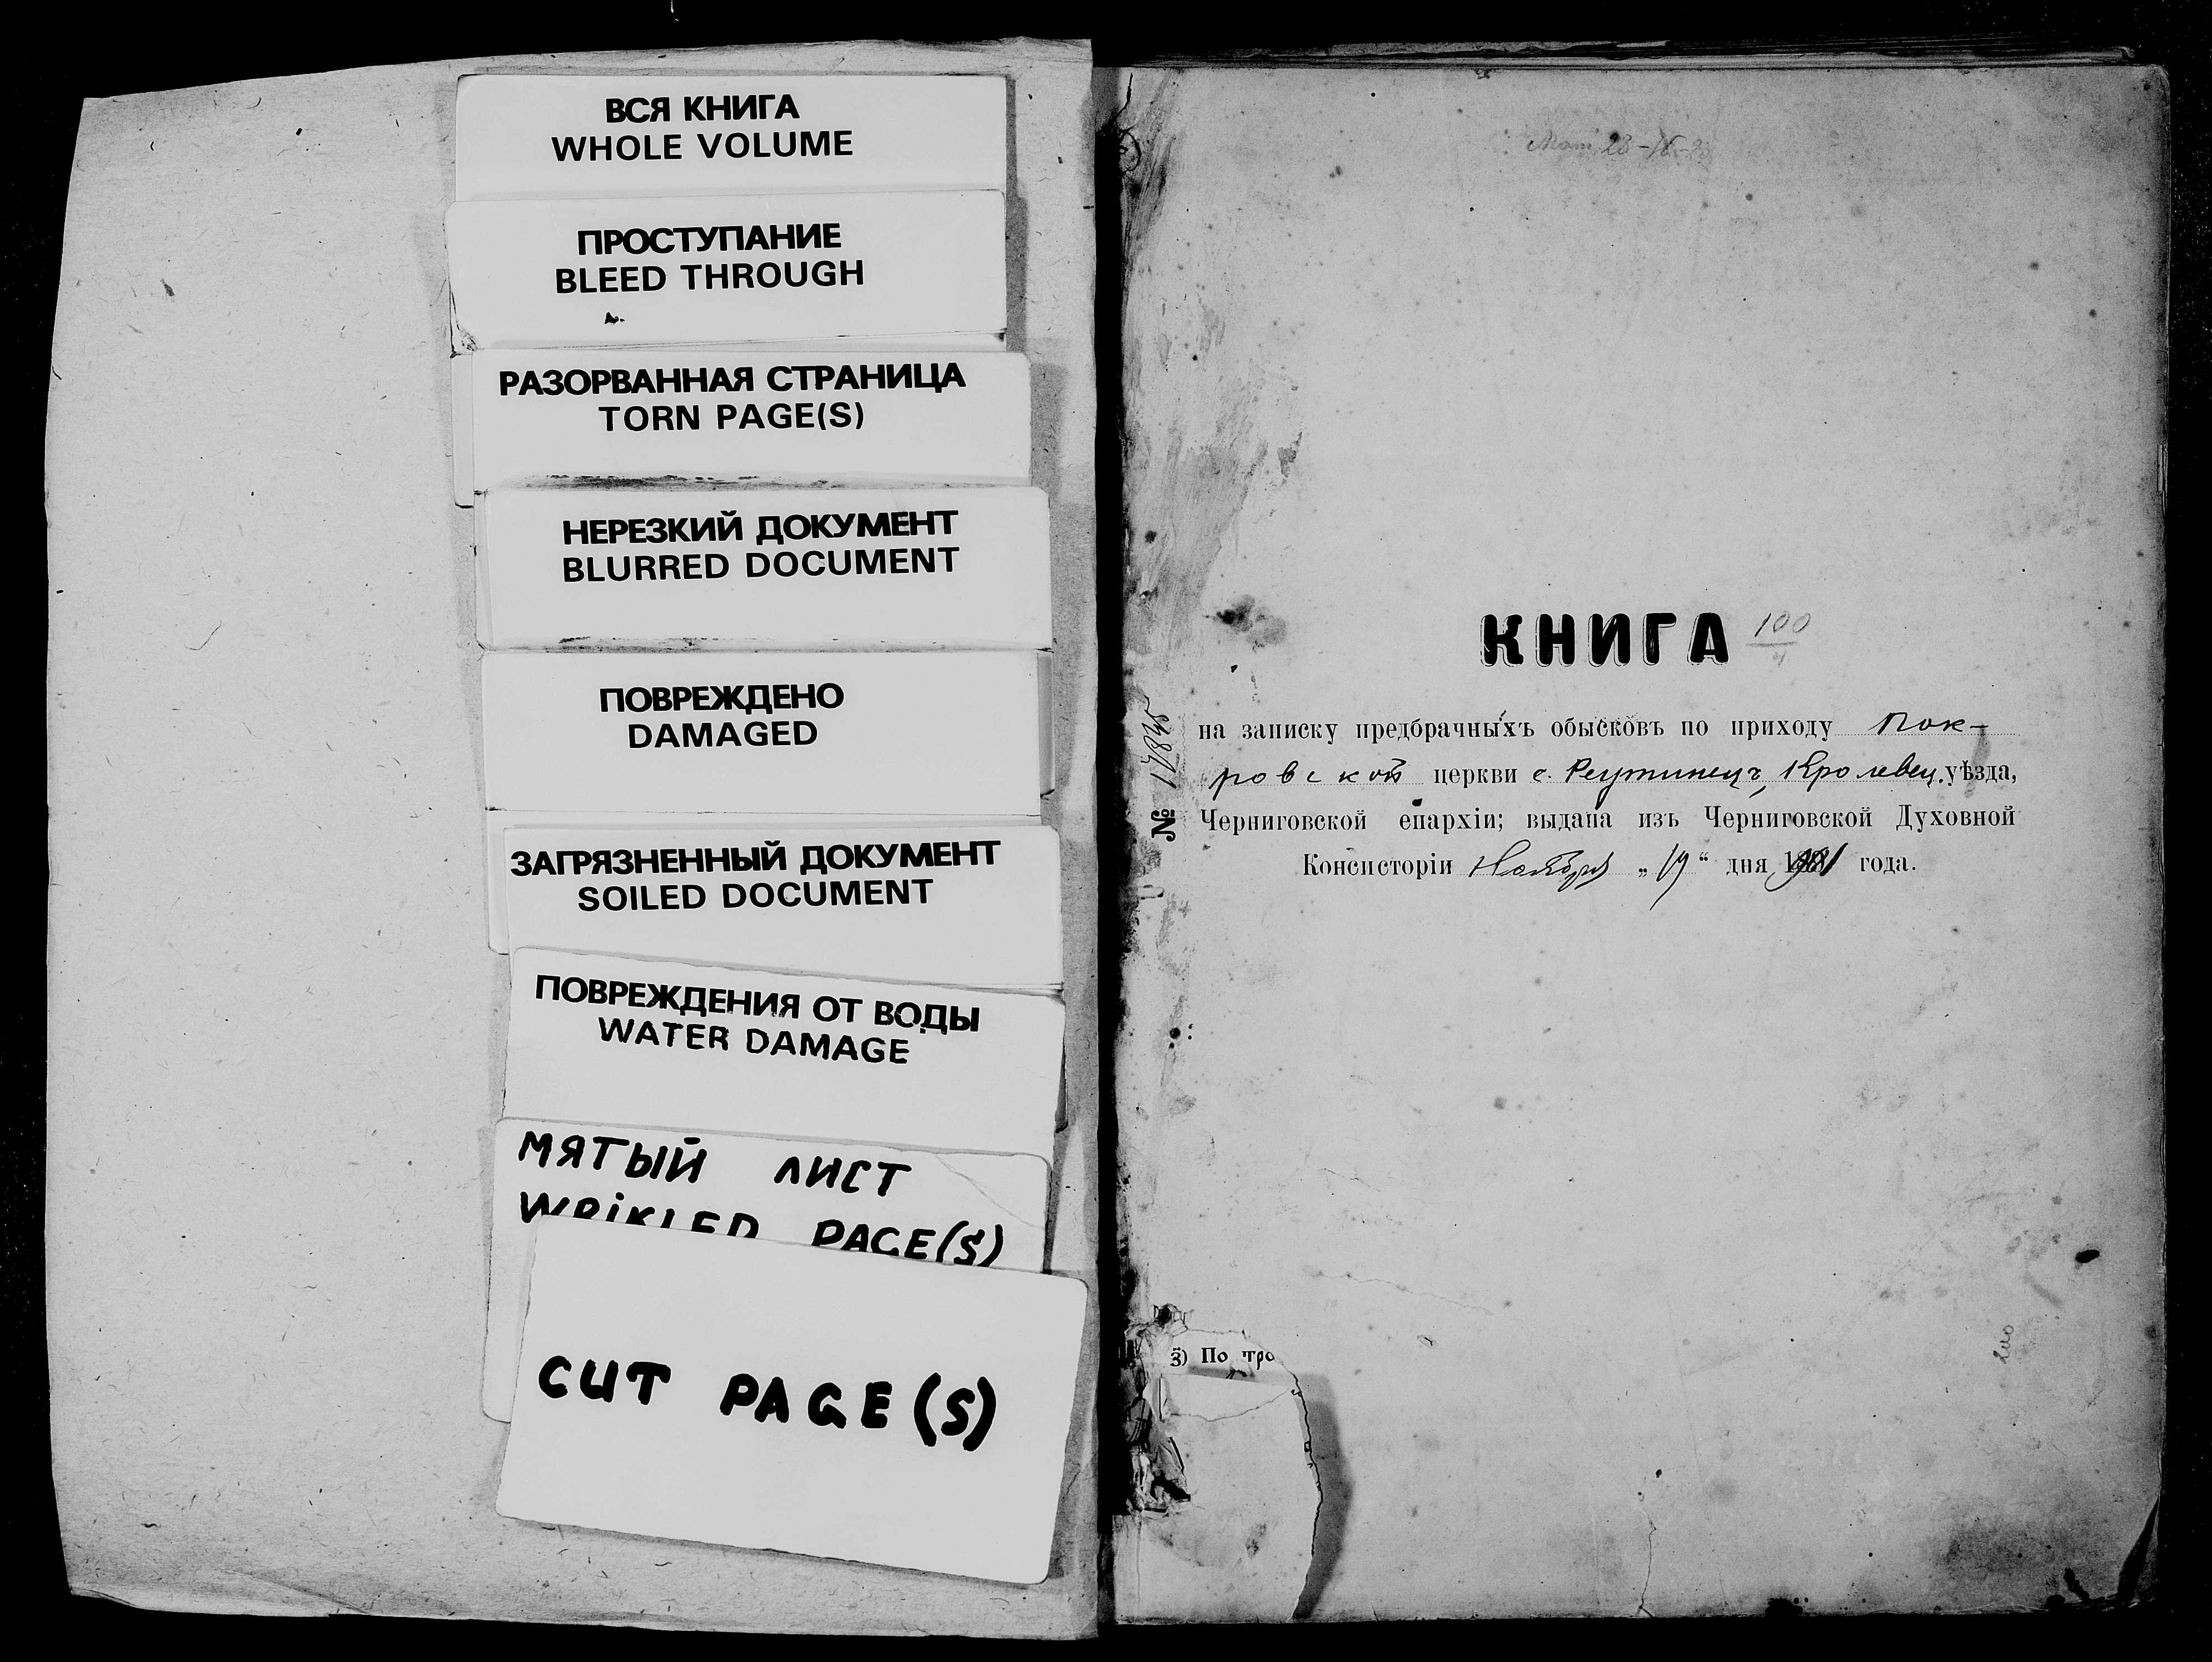 ВСЯ КНИГА
WHOLE VOLUME
ПРОСТУПАНИЕ
BLEED THROUGH
РАЗОРВАННАЯ СТРАНИЦА
TORN PAGE(S)
НЕРЕЗКИЙ ДОКУМЕНТ
BLURRED DOCUMENT
ПОВРЕЖДЕНО
DAMAGED
ЗАГРЯЗНЕННЫЙ ДОКУМЕНТ
SOILED DOCUMENT
ПОВРЕЖДЕНИЯ ОТ ВОДЫ
WATER DAMAGE
МЯТЫЙ ЛИСТ
WRIKLED PAGE(S)
CUT PAGE(S)
КНИГА 100
на записку предбрачныхъ обысковъ по приходу Пок-
ровской церкви с. Реутинецъ, Кролевец. уѣзда,
Черниговской епархіи; выдана изъ Черниговской Духовной
Консисторіи Ноября „19“ дня года.
№
3) По тро